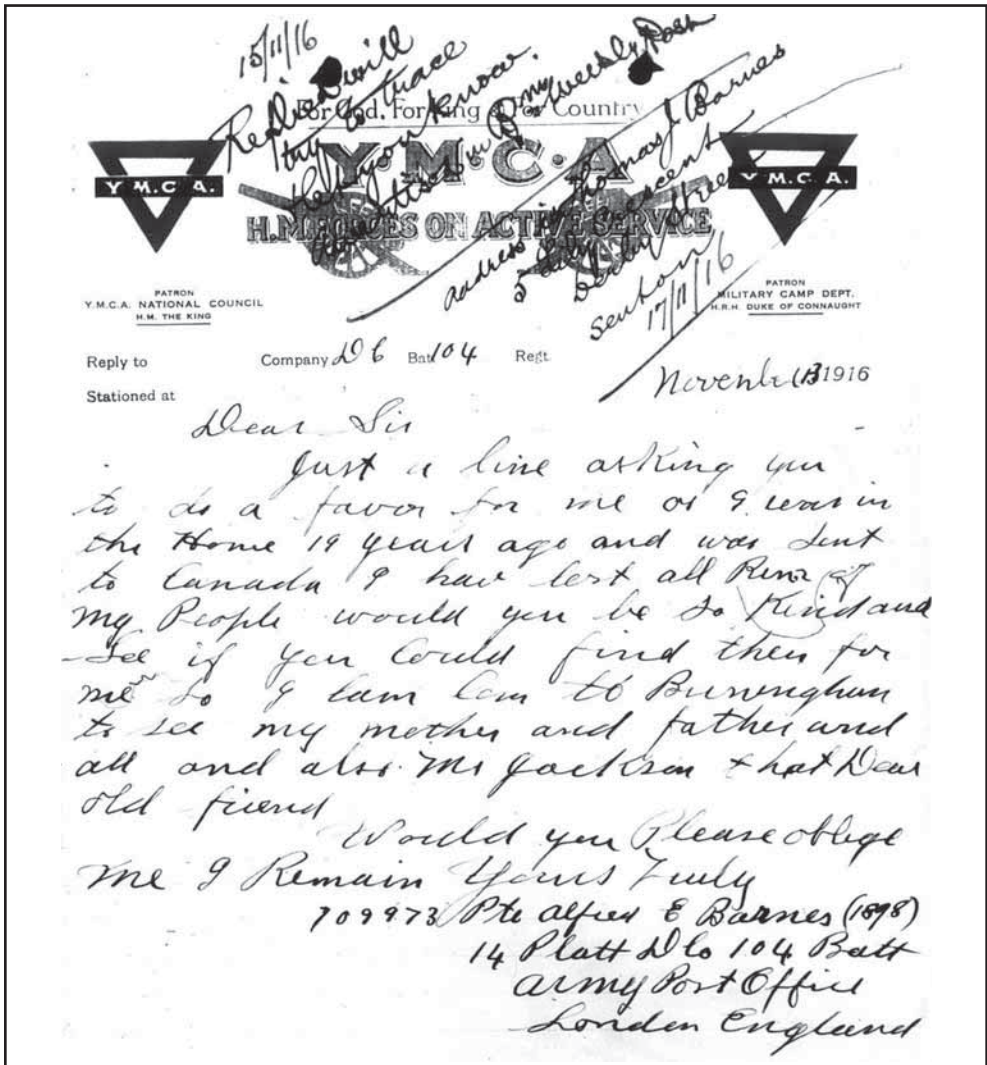 15/11/16
Replied will
try to trace
& let you know.
Advertised in Bmg Weekly Post
For God, For King & For Country
Y·M·C·A
H.M. FORCES ON ACTIVE SERVICE
Y M.C.A.
Y M.C.A.
address Thomas J Barnes
5 Crescent
Sent on
17/11/16
PATRON
Y.M.C.A. NATIONAL COUNCIL
H.M. THE KING
PATRON
MILITARY CAMP DEPT.
H.R.H. DUKE OF CONNAUGHT
Reply to Company D C Bat 104 Regt.
Stationed at
November 13 1916
Dear Sir
Just a line asking you
to do a favor for me as I was in
the Home 19 years ago and was sent
to Canada I hav lost all Runz of
my People would you be so Kind and
see if you Could find them for
me so I can Com to Burmingham
to see my mother and father and
all and also Mr Jackson that Dear
old friend
Would you Please oblege
me I Remain Yours Truly
709973 Pte Alfred E Barnes (1898)
14 Platt D Co 104 Batt
Army Post Office
London England